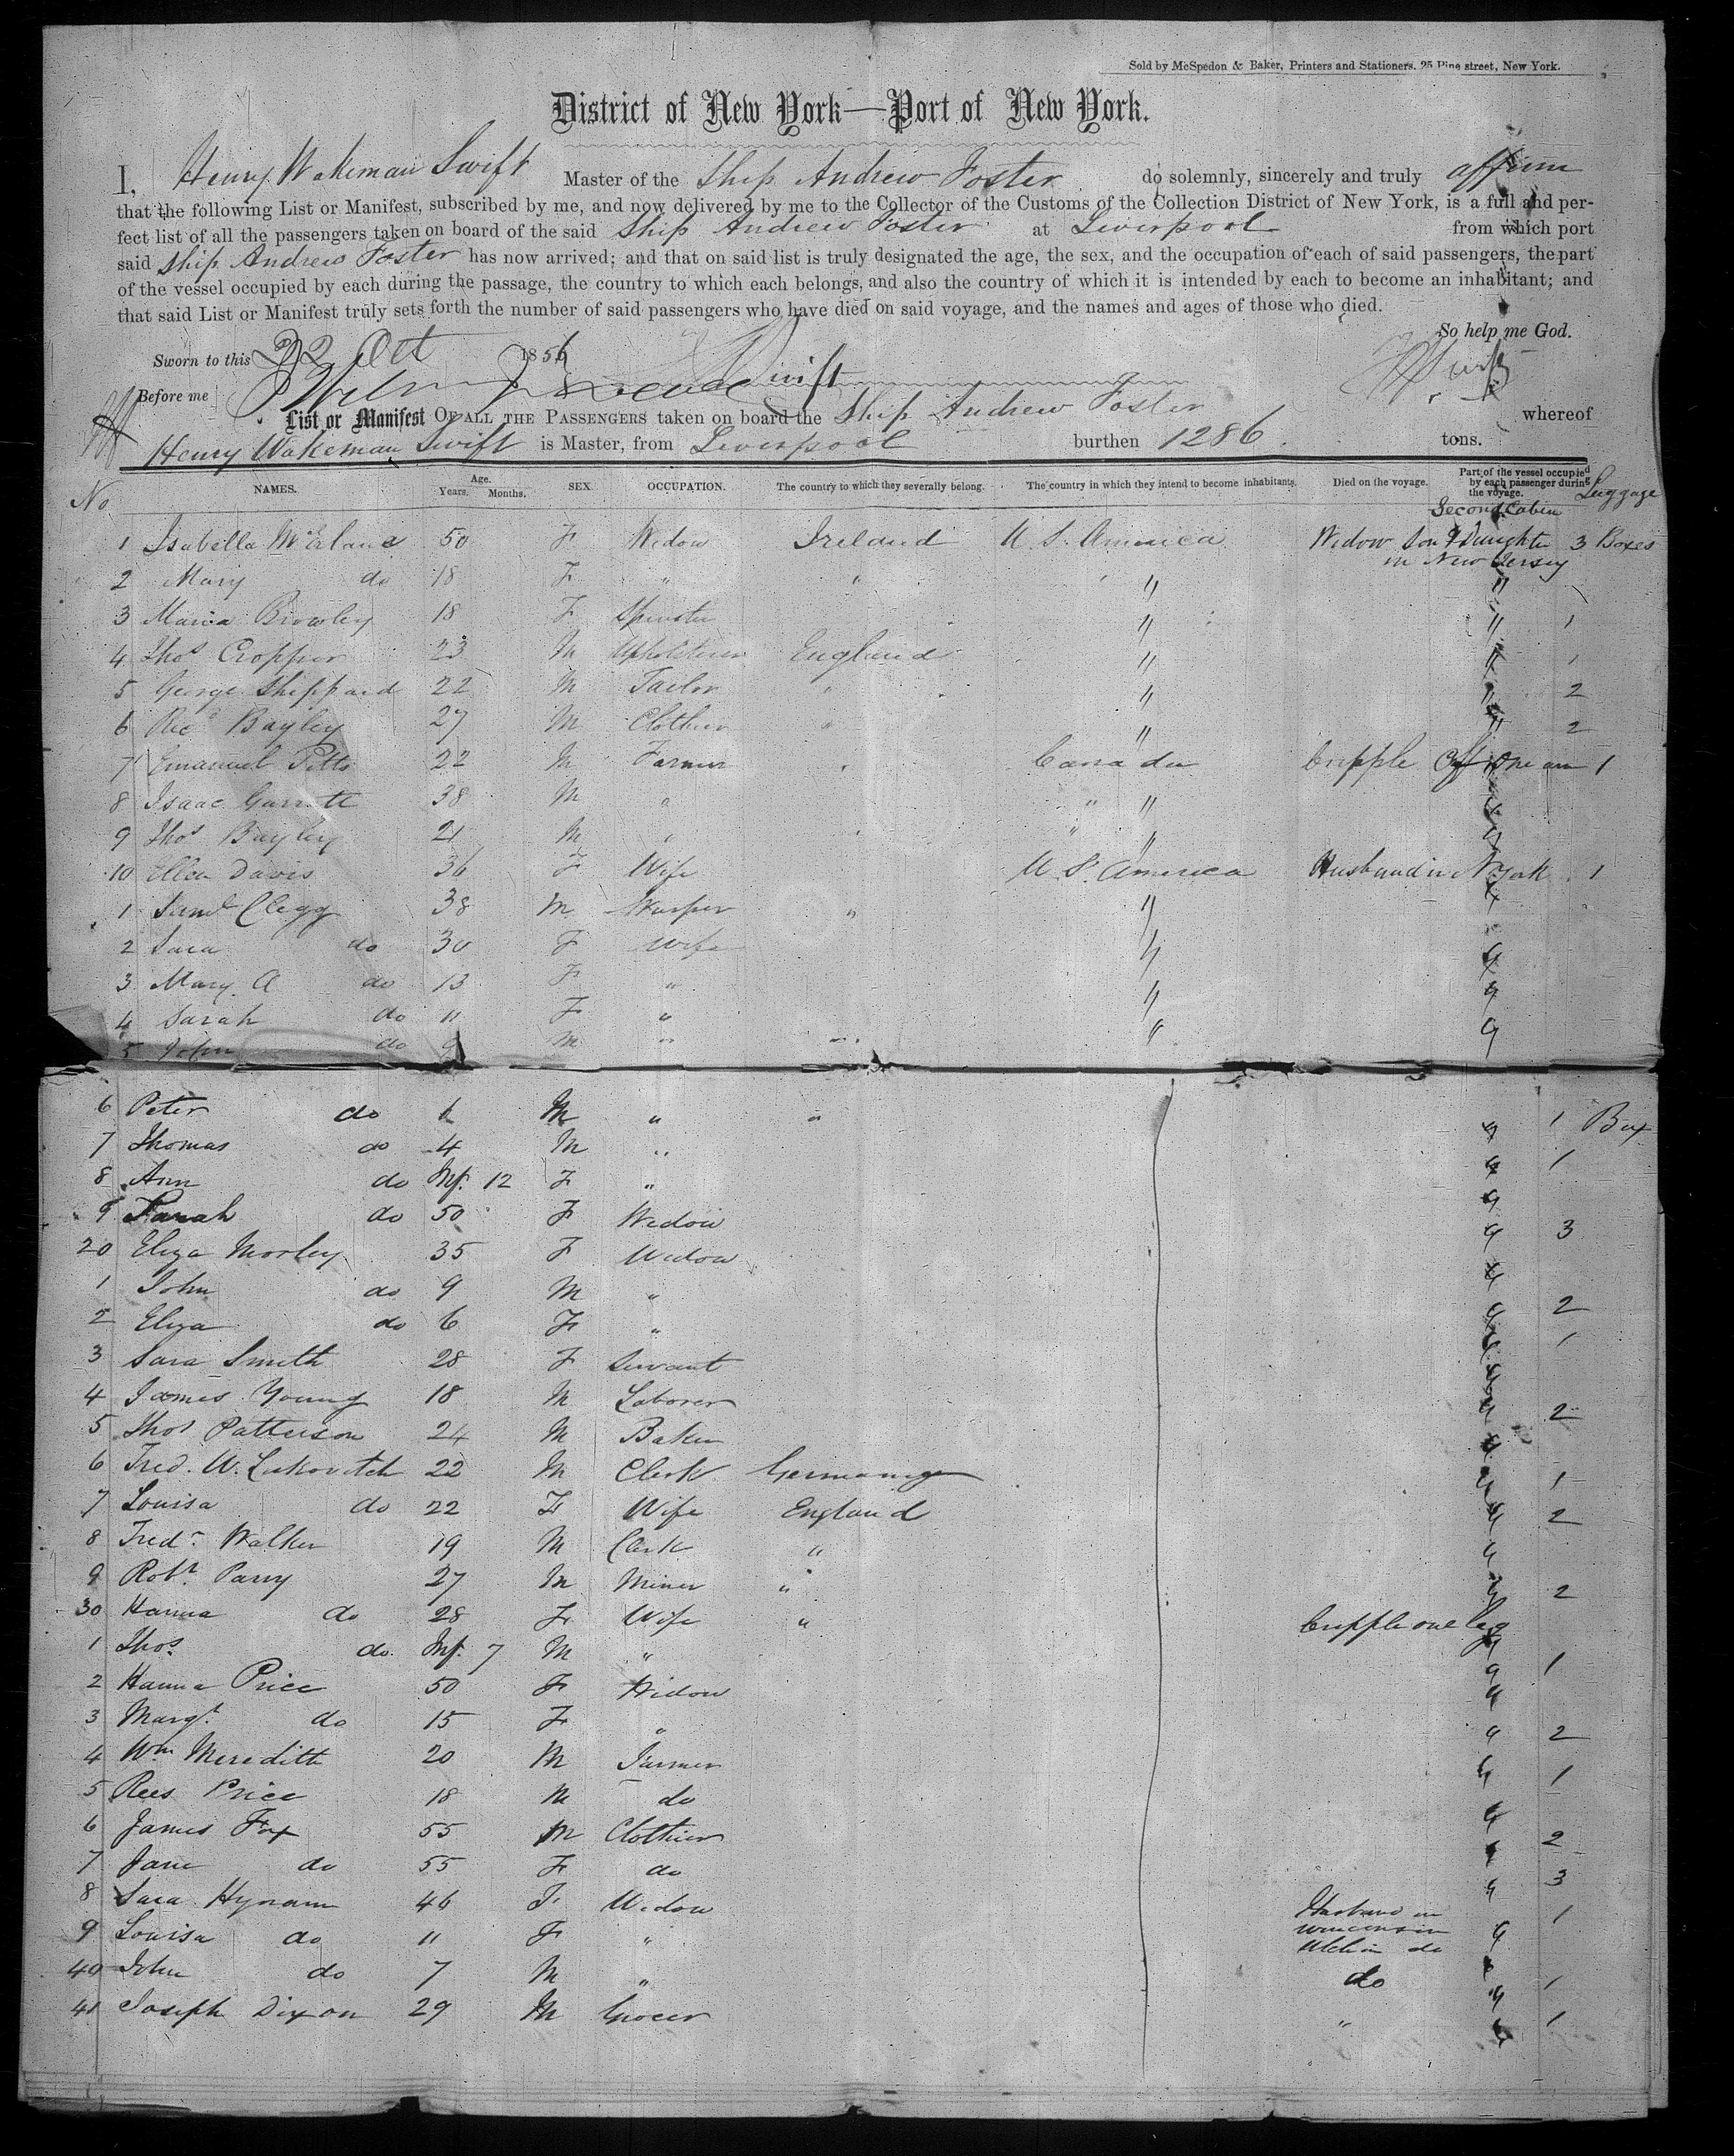 Sold by McSpedon & Baker, Printers and Stationers, 25 Pine street, New York.
District of New York—Port of New York.
I, Henry Wakeman Swift Master of the Ship Andrew Foster do solemnly, sincerely and truly affirm
that the following List or Manifest, subscribed by me, and now delivered by me to the Collector of the Customs of the Collection District of New York, is a full and per-
fect list of all the passengers taken on board of the said Ship Andrew Foster at Liverpool from which port
said Ship Andrew Foster has now arrived; and that on said list is truly designated the age, the sex, and the occupation of each of said passengers, the part
of the vessel occupied by each during the passage, the country to which each belongs, and also the country of which it is intended by each to become an inhabitant; and
that said List or Manifest truly sets forth the number of said passengers who have died on said voyage, and the names and ages of those who died.
So help me God.
Sworn to this 22 Oct 1856
Before me Swift
List or Manifest OF ALL THE PASSENGERS taken on board the Ship Andrew Foster whereof
Henry Wakeman Swift is Master, from Liverpool burthen 1286. tons.
No NAMES. Age. Years. Months. SEX. OCCUPATION. The country to which they severally belong. The country in which they intend to become inhabitants. Died on the voyage. Part of the vessel occupied by each passenger during the voyage. Luggage
Second Cabin
1 Isabella 50 F Widow Ireland U.S. America Widow Son & Daughter 3 Boxes
in New Jersey
2 Mary do 18 F " " " "
3 Maria 18 F Spinster " " 1
4 Thos Cropper 23 M Upholsterer England " " 1
5 George Sheppard 22 M Tailor " " " 2
6 Ric Bayley 27 M Clothier " " " 2
7 Emanuel Pitts 22 M Farmer " Canada Cripple Off One arm 1
8 Isaac Garrett 38 M " " " "
9 Thos Bayley 21 M " " " " "
10 Ellen Davis 36 F Wife U.S. America Husband in N York 1
1 Saml Clegg 38 M Warper " " "
2 Sara do 30 F Wife " "
3 Mary A do 13 F " " "
4 Sarah do 11 F " " "
5 John do 9 M " " " "
6 Peter do 6 M " " " 1 Box
7 Thomas do 4 M " " 1
8 Ann do Inf. 12 F " "
9 Sarah do 50 F Widow " 3
20 Eliza Morley 35 F Widow "
1 John do 9 M " " 2
2 Eliza do 6 F " " 1
3 Sara Smith 28 F Servant "
4 James Young 18 M Laborer " 2
5 Thos Patterson 24 M Baker "
6 Fred. W. 22 M Clerk Germany " 1
7 Louisa do 22 F Wife England " 2
8 Fredr Walker 19 M Clerk " "
9 Robt. Parry 27 M Miner " " 2
30 Hanna do 28 F Wife " Cripple one leg "
1 Thos. do. Inf. 7 M " " 1
2 Hanna Price 50 F Widow "
3 Margt. do 15 F " " 2
4 Wm Meredith 20 M Farmer " 1
5 Rees Price 18 M do "
6 James Fox 55 M Clothier " 2
7 Jane do 55 F do " 3
8 Sara Hynam 46 F Widow Husband in 1
9 Louisa do 11 F " "
40 John do 7 M " do " 1
41 Joseph Dixon 29 M Grocer " " 1